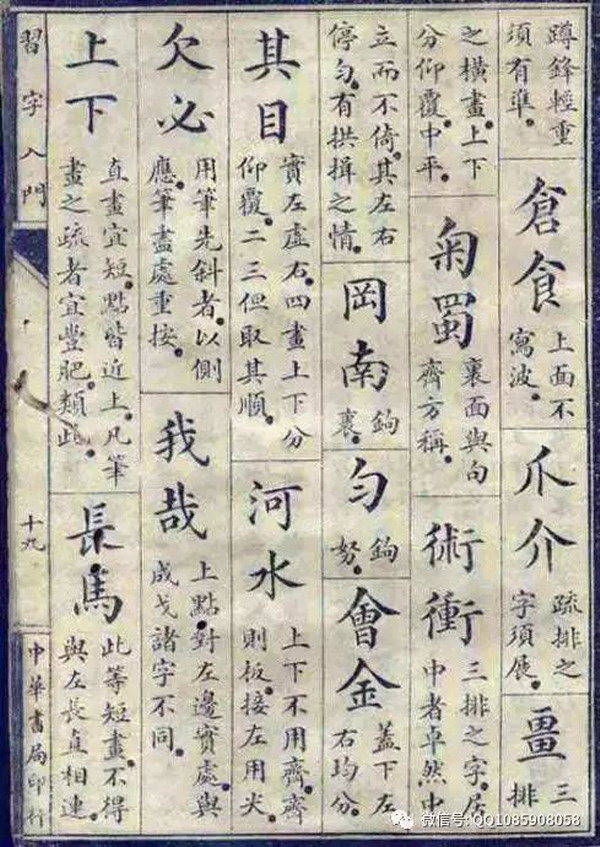 蹲鋒輕重
須有準。
倉食
上面不
寫波。
爪介
疏排之
字須展。
畺
三
排
之橫畫。上下
分仰覆。中平。
菊蜀
裏面與句
齊方稱。
術衝
三排之字。居
中者卓然中
立而不倚。其左右
停勻。有拱揖之情。
岡南
鉤
裏。
勻
鉤
努。
會金
蓋下左
右均分。
其目
實左虛右。四畫上下分
仰覆。二三但取其順。
河水
上下不用齊。齊
則板。接左用尖。
欠必
用筆先斜者。以側
應。筆盡處重按。
我哉
上點。對左邊實處。與
成戈諸字不同。
上下
直畫宜短。點皆近上。凡筆
畫之疏者宜豐肥。類此。
長馬
此等短畫。不得
與左長直相連。
習字入門
十九
中華書局印行
微信号: QQ1085908058